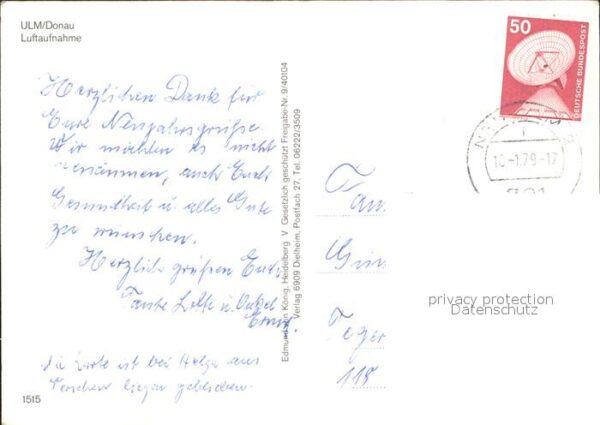 ULM/Donau
Luftaufnahme
Herzlichen Dank für
Eure Neujahrsgrüße.
Wir möchten es nicht
versäumen, auch Euch
Gesundheit u. alles Gute
zu wünschen.
Herzlich grüßen Euch
Tante Lotte u. Onkel
Ernst
die Karte ist bei Helga aus
Versehen liegen geblieben.
1515
Edmund von König, Heidelberg V Gesetzlich geschützt Freigabe-Nr. 9/40104
Verlag 6909 Dielheim, Postfach 27, Tel. 06222/3509
50
DEUTSCHE BUNDESPOST
10.-1.79-17
Fam.
Teger
118
privacy protection
Datenschutz